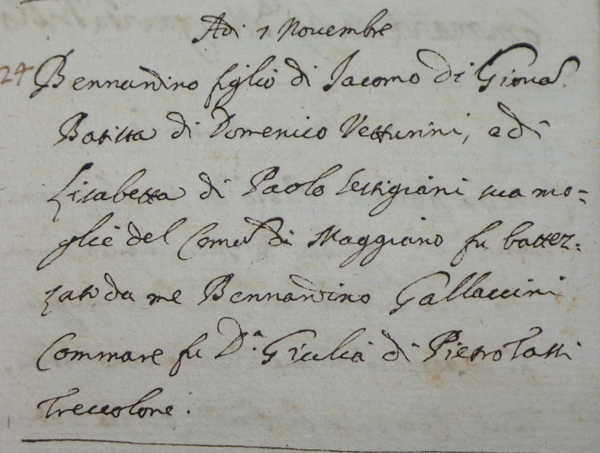 Adi 1 Novembre
24 Bernardino figlio di Jacomo di Giova.
Batista di Domenico Vetturini, e di
Lisabetta di Paolo sua mo=
glie del Comu. di Maggiano fu battez=
zato da me Bernardino Gallaccini
Commare fu D.a Giulia di Pietro Tassi
Treccolone.